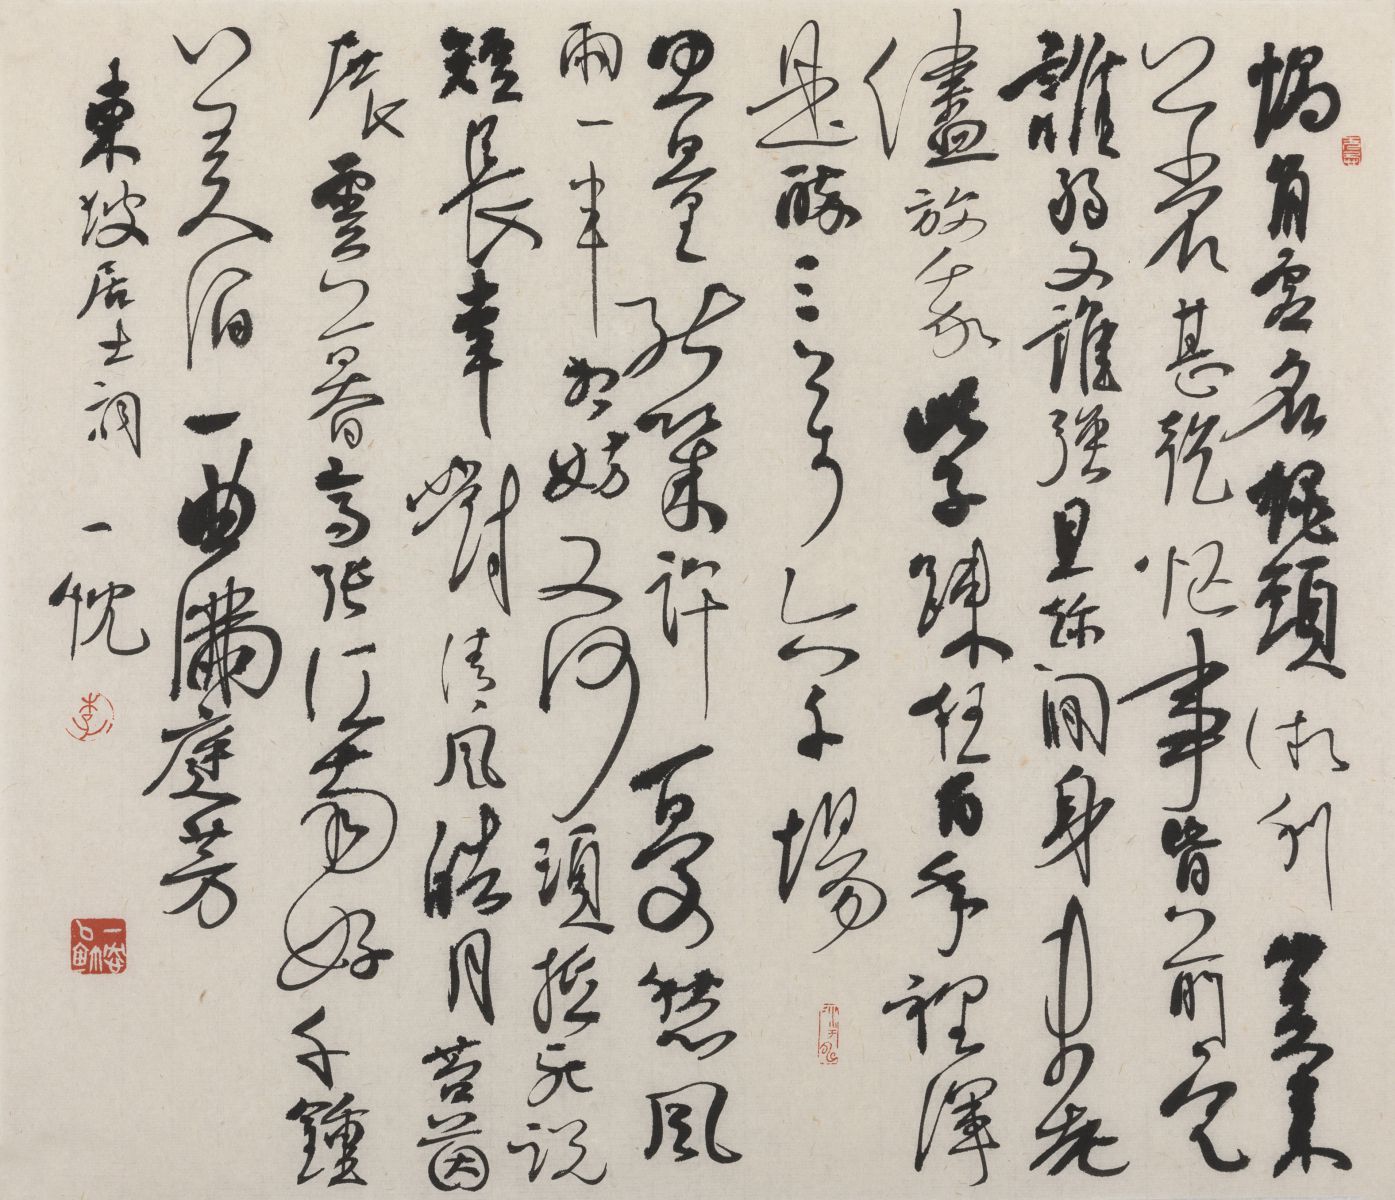 蝸角虛名蠅頭微利算來
着甚乾忙事皆前定
誰弱又誰強且趁閒身未老
儘放我些子疎狂百年裡渾
是醉三萬六千場
思量能幾許憂愁風
雨一半相妨又何須抵死說
短長幸對清風皓月苔茵
展雲幕高張江南好千鍾
美酒一曲滿庭芳
東坡居士詞 一忱
李